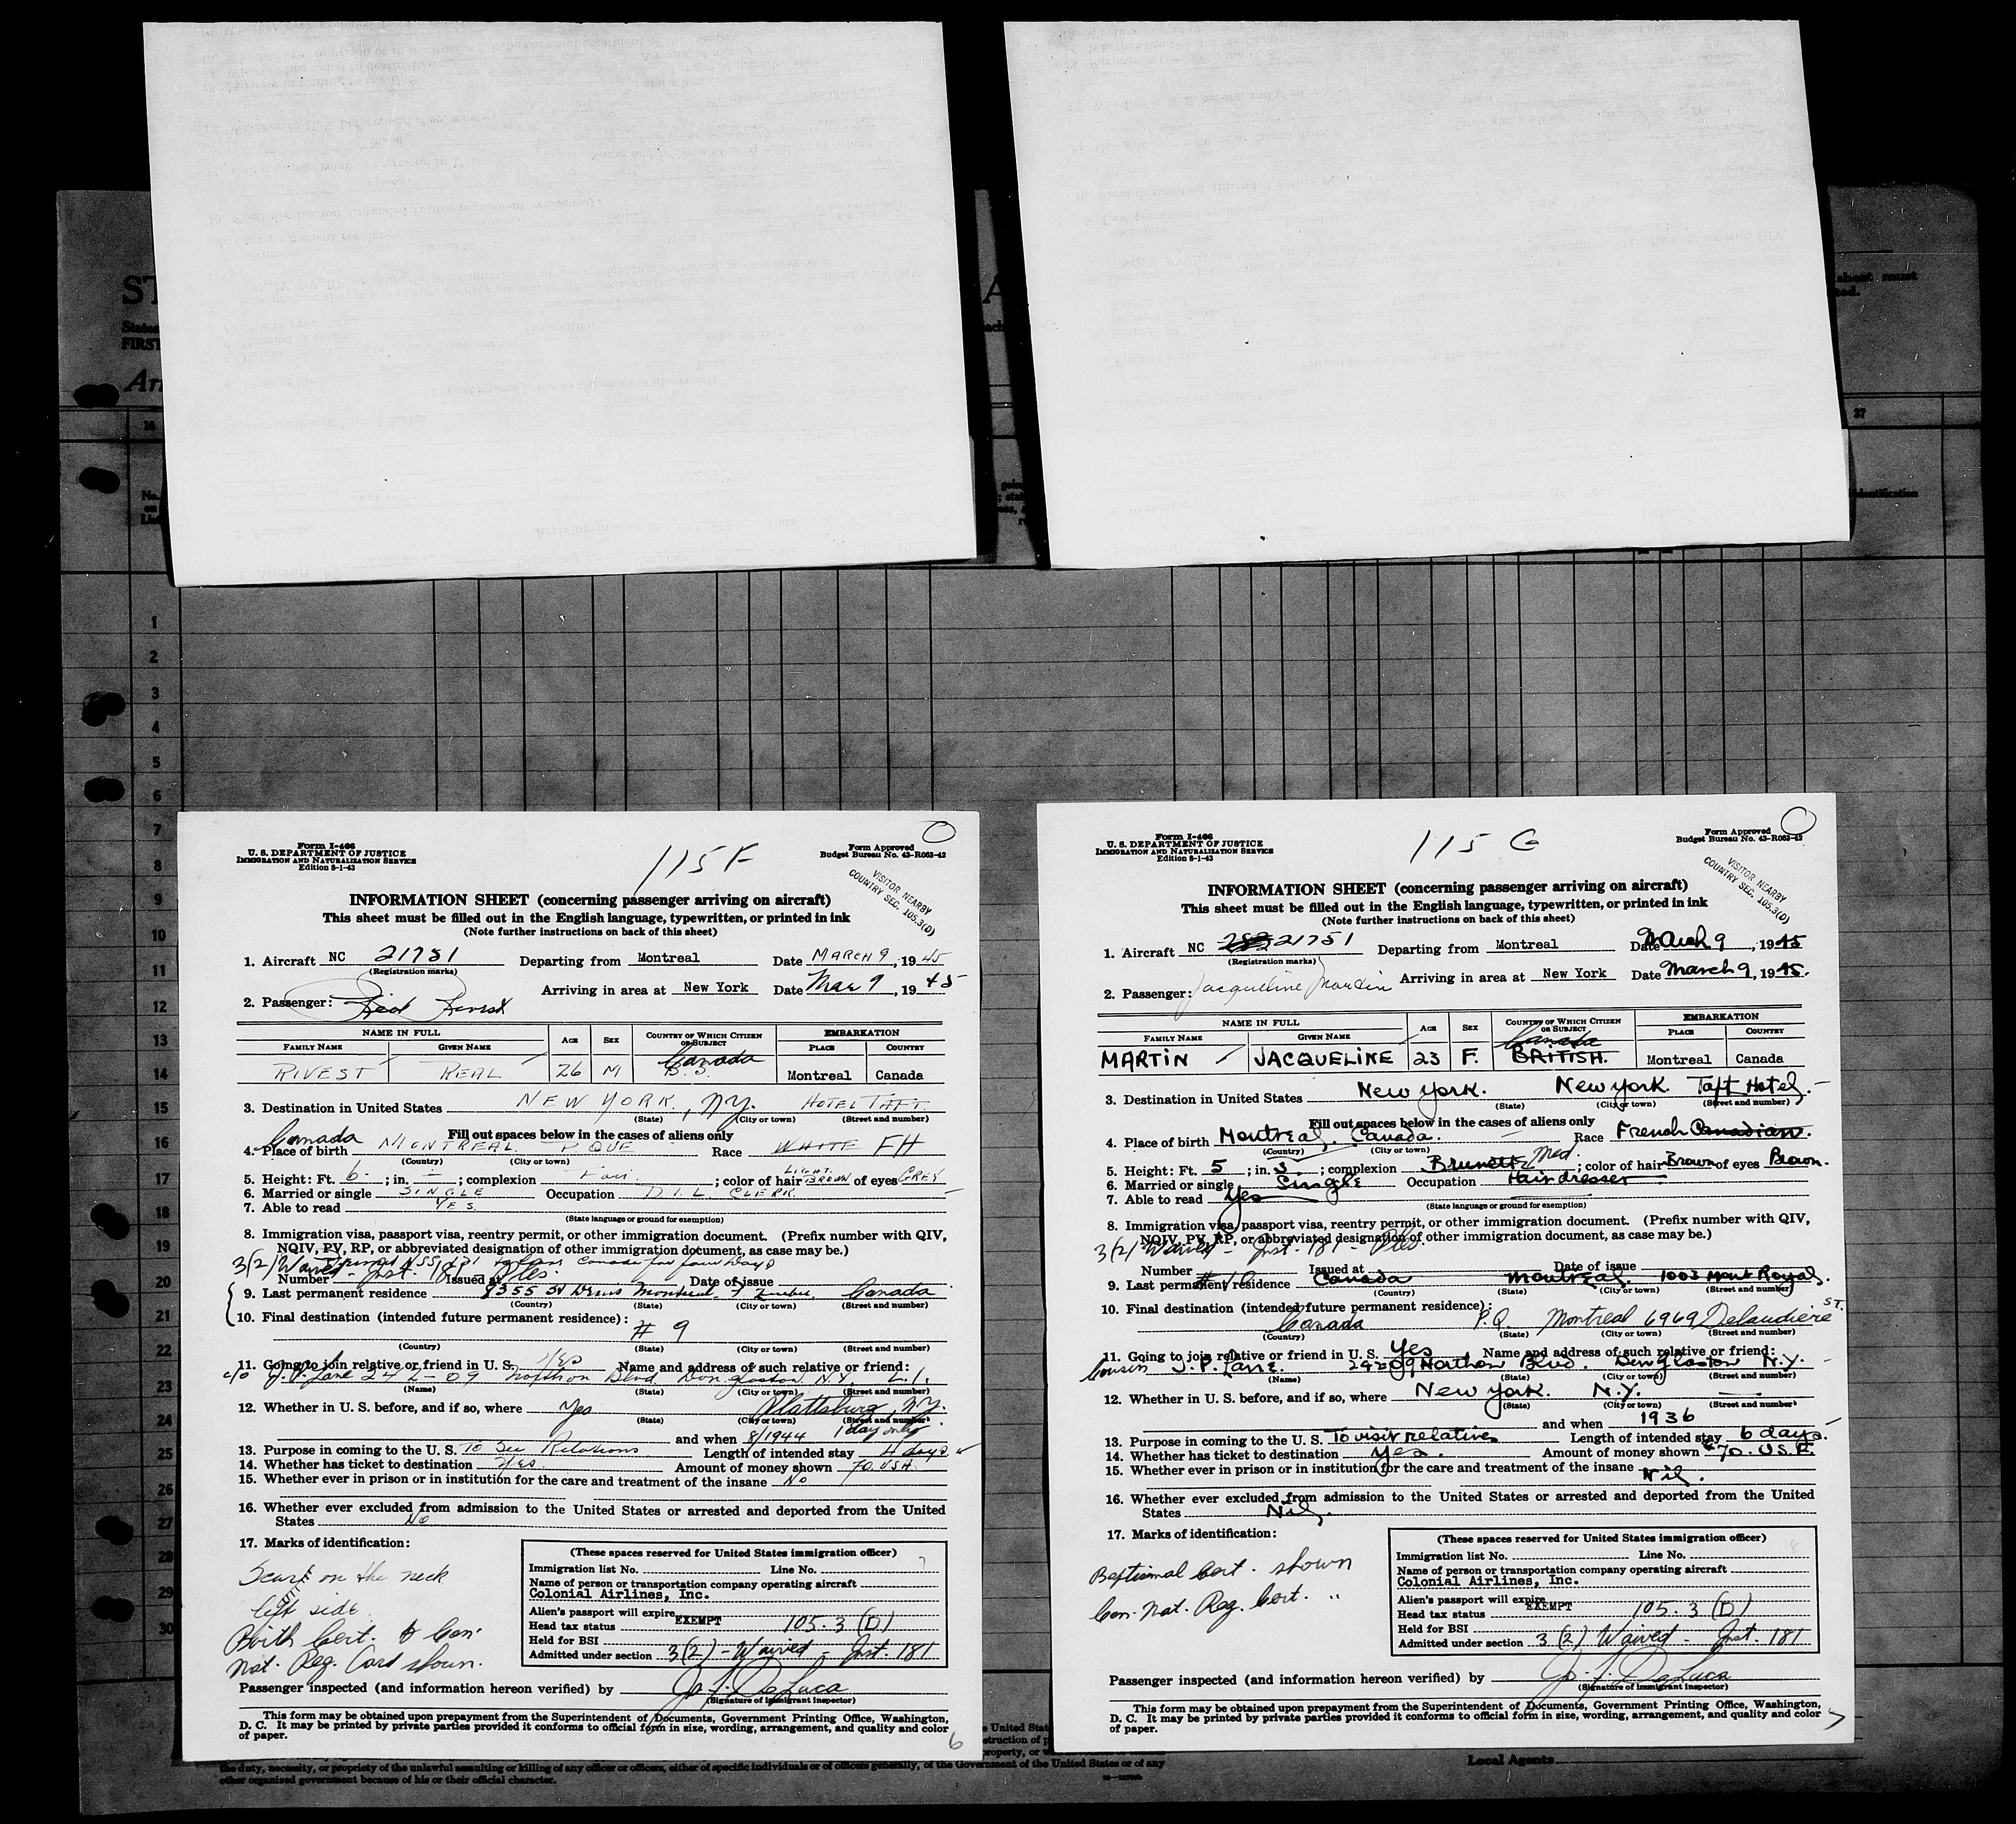 1
2
3
4
5
6
7
8
9
10
11
12
13
14
15
16
17
18
19
20
21
22
23
24
25
26
27
28
29
30
37
Form I-466
U. S. DEPARTMENT OF JUSTICE
IMMIGRATION AND NATURALIZATION SERVICE
Edition 8-1-43
115 F
Form Approved
Budget Bureau No. 43-R063-42
VISITOR NEARBY
COUNTRY SEC. 105.3(D)
INFORMATION SHEET (concerning passenger arriving on aircraft)
This sheet must be filled out in the English language, typewritten, or printed in ink
(Note further instructions on back of this sheet)
1. Aircraft NC 21751 Departing from Montreal Date MARCH 9, 1945
(Registration marks)
Arriving in area at New York Date Mar 9, 1945
2. Passenger: Rivest
NAME IN FULL AGE SEX COUNTRY OF WHICH CITIZEN OR SUBJECT EMBARKATION
FAMILY NAME GIVEN NAME PLACE COUNTRY
RIVEST REAL 26 M Canada Montreal Canada
3. Destination in United States NEW YORK, NY. HOTEL TAFT
(State) (City or town) (Street and number)
Fill out spaces below in the cases of aliens only
4. Place of birth Canada MONTREAL P QUE Race WHITE FH
(Country) (City or town)
5. Height: Ft. 6 ; in. – ; complexion Fair ; color of hair LIGHT BROWN of eyes GREY
6. Married or single SINGLE Occupation D.I.L. CLERK
7. Able to read YES
(State language or ground for exemption)
8. Immigration visa, passport visa, reentry permit, or other immigration document. (Prefix number with QIV,
NQIV, PV, RP, or abbreviated designation of other immigration document, as case may be.)
3(2) Waived - Inst. 181
Number Issued at Date of issue
9. Last permanent residence 9355 St Denis Montreal Quebec Canada
(Country) (State) (City or town) (Street and number)
10. Final destination (intended future permanent residence):
# 9
(Country) (State) (City or town) (Street and number)
11. Going to join relative or friend in U. S. Yes Name and address of such relative or friend:
c/o J.P. Lane 242-09 Northon Blvd. Douglaston, N.Y. L.I.
(Name) (State) (City or town) (Street and number)
12. Whether in U. S. before, and if so, where Yes Plattsburg, N.Y.
(State) (City or town) (Street and number)
and when 8/1944 1 day only
13. Purpose in coming to the U. S. To See Relations Length of intended stay 4 days
14. Whether has ticket to destination Yes. Amount of money shown 70. USA.
15. Whether ever in prison or in institution for the care and treatment of the insane No
16. Whether ever excluded from admission to the United States or arrested and deported from the United
States No
17. Marks of identification:
Scar on the neck
left side
Birth Cert. & Can.
Nat. Reg. Card shown.
(These spaces reserved for United States immigration officer)
Immigration list No. Line No. 7
Name of person or transportation company operating aircraft
Colonial Airlines, Inc.
Alien's passport will expire
Head tax status EXEMPT 105.3 (D)
Held for BSI
Admitted under section 3(2) - Waived - Inst. 181
Passenger inspected (and information hereon verified) by DeLuca
(Signature of immigrant inspector)
This form may be obtained upon prepayment from the Superintendent of Documents, Government Printing Office, Washington,
D. C. It may be printed by private parties provided it conforms to official form in size, wording, arrangement, and quality and color
of paper.
6
Form I-466
U. S. DEPARTMENT OF JUSTICE
IMMIGRATION AND NATURALIZATION SERVICE
Edition 8-1-43
115 G
Form Approved
Budget Bureau No. 43-R063-42
VISITOR NEARBY
COUNTRY SEC. 105.3(D)
INFORMATION SHEET (concerning passenger arriving on aircraft)
This sheet must be filled out in the English language, typewritten, or printed in ink
(Note further instructions on back of this sheet)
1. Aircraft NC 21751 Departing from Montreal Date March 9, 1945
(Registration marks)
Arriving in area at New York Date March 9, 1945.
2. Passenger: Jacqueline Martin
NAME IN FULL AGE SEX COUNTRY OF WHICH CITIZEN OR SUBJECT EMBARKATION
FAMILY NAME GIVEN NAME PLACE COUNTRY
MARTIN JACQUELINE 23 F. Canada BRITISH. Montreal Canada
3. Destination in United States New York. New York. Taft Hotel.
(State) (City or town) (Street and number)
Fill out spaces below in the cases of aliens only
4. Place of birth Montreal. Canada. Race French Canadian.
(Country) (City or town)
5. Height: Ft. 5 ; in. 3 ; complexion Brunette Med. ; color of hair Brown of eyes Brown.
6. Married or single Single Occupation Hairdresser
7. Able to read Yes
(State language or ground for exemption)
8. Immigration visa, passport visa, reentry permit, or other immigration document. (Prefix number with QIV,
NQIV, PV, RP, or abbreviated designation of other immigration document, as case may be.)
3(2) Waived - Inst. 181
Number Issued at Date of issue
9. Last permanent residence # 10 Canada Montreal. 1003 Mont Royal.
(Country) (State) (City or town) (Street and number)
10. Final destination (intended future permanent residence):
Canada P.Q. Montreal 6969 Delaudière ST.
(Country) (State) (City or town) (Street and number)
11. Going to join relative or friend in U. S. Yes Name and address of such relative or friend:
Cousin J.P. Lane. 24209 Northon Blvd. Douglaston N.Y.
(Name) (State) (City or town) (Street and number)
12. Whether in U. S. before, and if so, where New York. N.Y.
(State) (City or town) (Street and number)
and when 1936
13. Purpose in coming to the U. S. To visit relatives Length of intended stay 6 days.
14. Whether has ticket to destination Yes. Amount of money shown $70. U.S.
15. Whether ever in prison or in institution for the care and treatment of the insane Nil.
16. Whether ever excluded from admission to the United States or arrested and deported from the United
States Nil.
17. Marks of identification:
Baptismal Cert. shown
Can. Nat. Reg. Cert. "
(These spaces reserved for United States immigration officer)
Immigration list No. Line No. 8
Name of person or transportation company operating aircraft
Colonial Airlines, Inc.
Alien's passport will expire
Head tax status EXEMPT 105.3 (D)
Held for BSI
Admitted under section 3(2) Waived - Inst. 181
Passenger inspected (and information hereon verified) by DeLuca
(Signature of immigrant inspector)
This form may be obtained upon prepayment from the Superintendent of Documents, Government Printing Office, Washington,
D. C. It may be printed by private parties provided it conforms to official form in size, wording, arrangement, and quality and color
of paper.
7
the duty, necessity, or propriety of the unlawful assaulting or killing of any officer or officers, either of specific individuals or of officers generally, of the Government of the United States or of any
other organized government because of his or their official character.
Local Agents